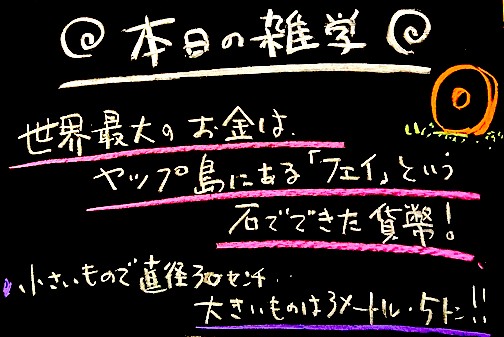 本日の雑学
世界最大のお金は
ヤップ島にある「フェイ」という
石でできた貨幣!
小さいもので直径30センチ‥
大きいものは3メートル・5トン!!